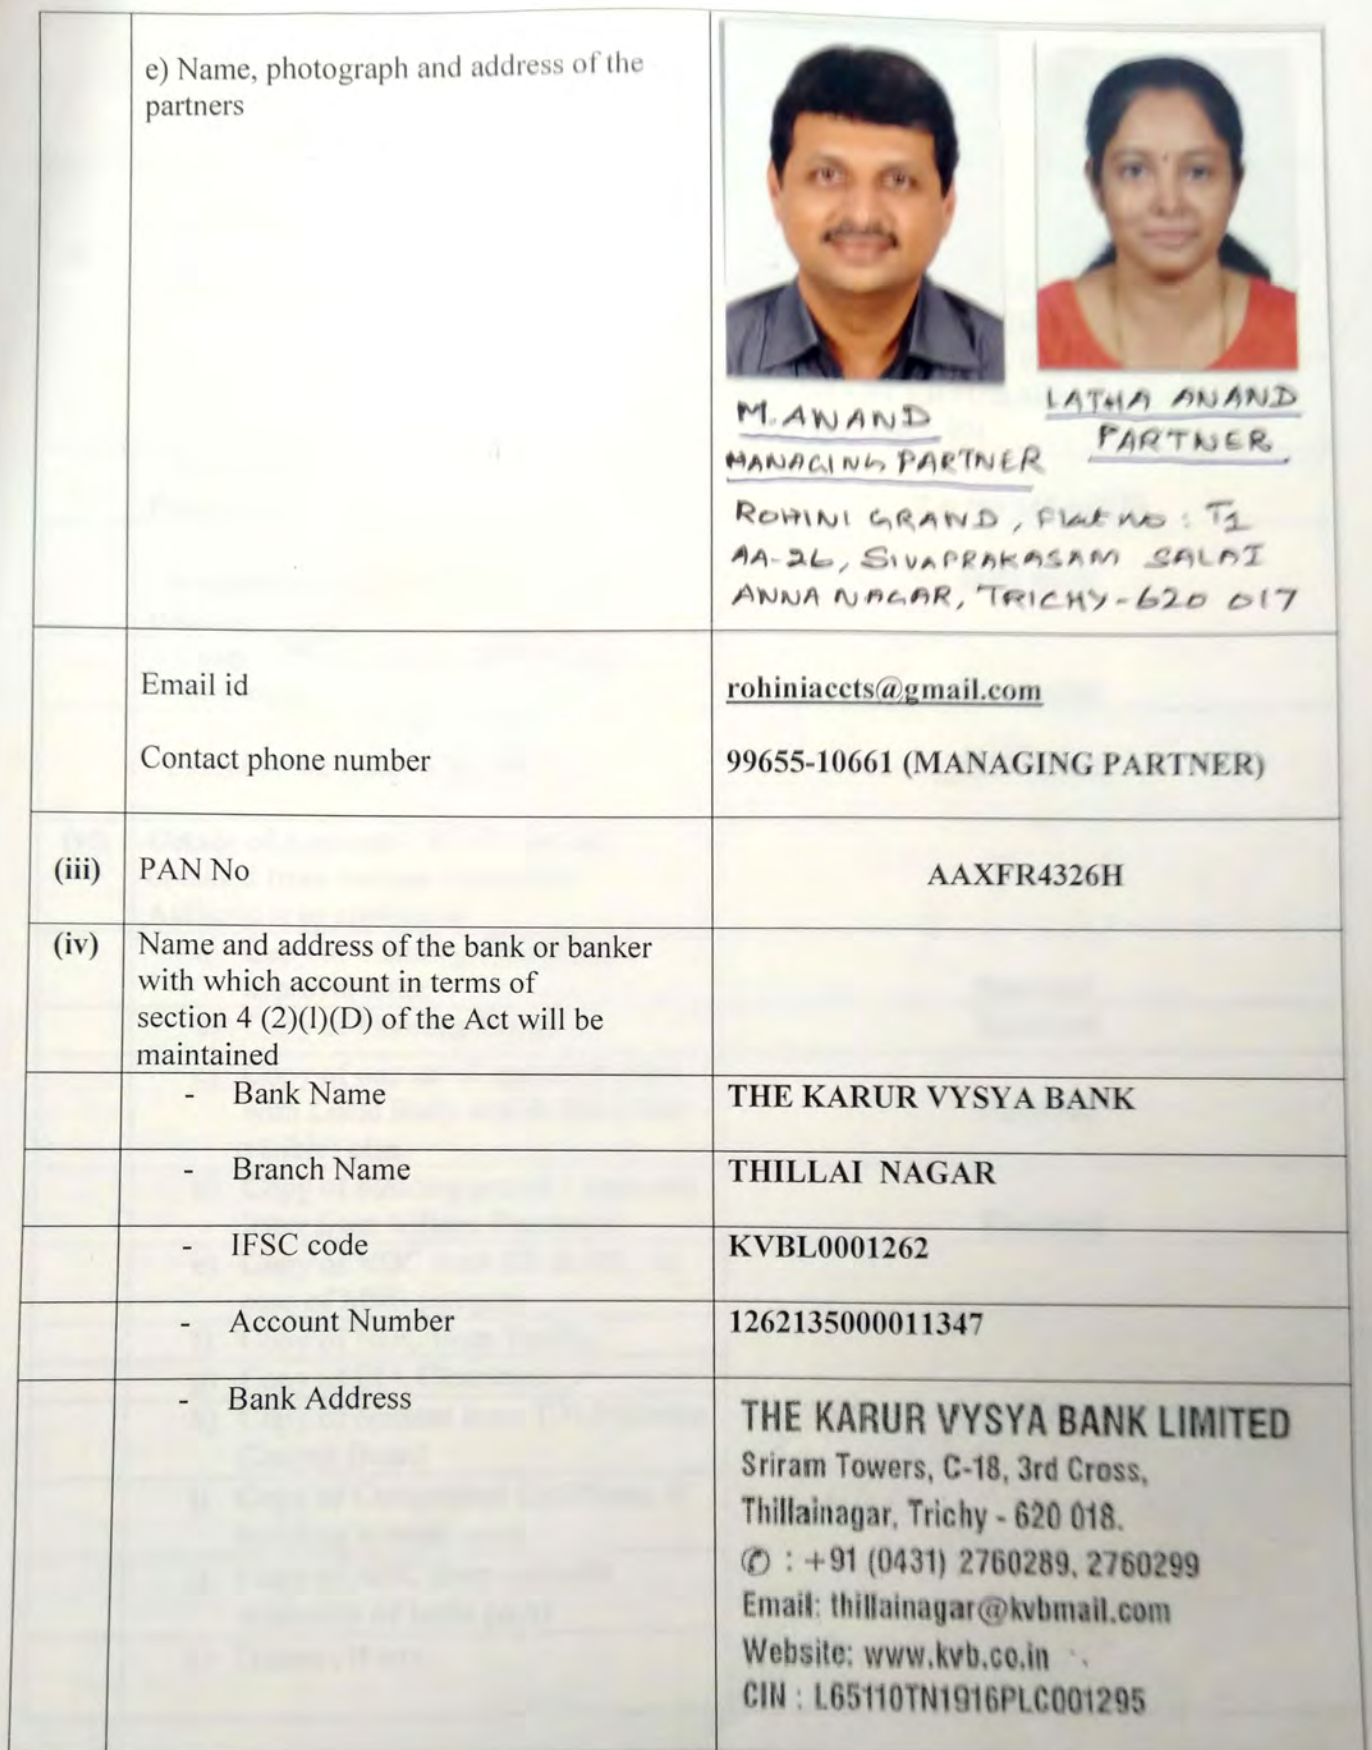 e) Name, photograph and address of the
partners
M. ANAND
MANAGING PARTNER
LATHA ANAND
PARTNER
ROHINI GRAND, Flat no : T1
AA-26, SIVAPRAKASAM SALAI
ANNA NAGAR, TRICHY-620 017
Email id
rohiniaccts@gmail.com
Contact phone number
99655-10661 (MANAGING PARTNER)
(iii) PAN No
AAXFR4326H
(iv) Name and address of the bank or banker
with which account in terms of
section 4 (2)(l)(D) of the Act will be
maintained
- Bank Name
THE KARUR VYSYA BANK
- Branch Name
THILLAI NAGAR
- IFSC code
KVBL0001262
- Account Number
1262135000011347
- Bank Address
THE KARUR VYSYA BANK LIMITED
Sriram Towers, C-18, 3rd Cross,
Thillainagar, Trichy - 620 018.
✆ : +91 (0431) 2760289, 2760299
Email: thillainagar@kvbmail.com
Website: www.kvb.co.in
CIN : L65110TN1916PLC001295